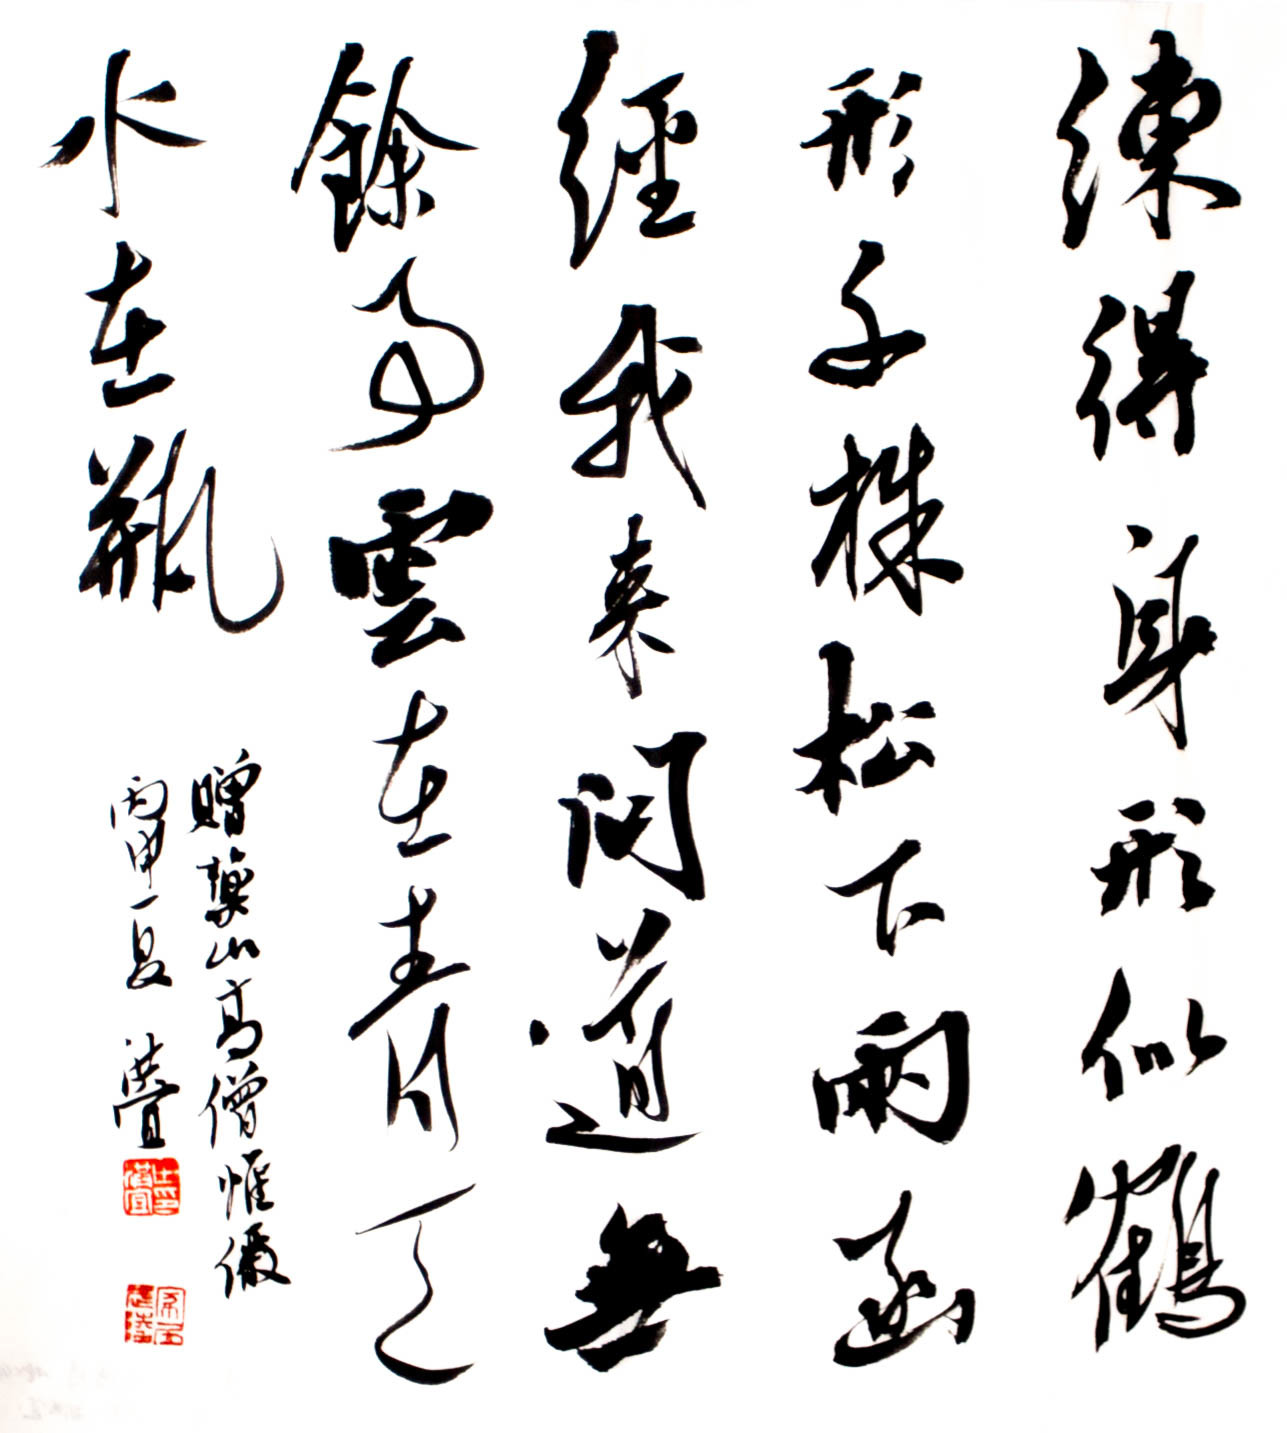 練得身形似鶴
形千株松下兩函
經我来問道無
餘事雲在青天
水在瓶
贈藥山高僧惟儼
丙申夏